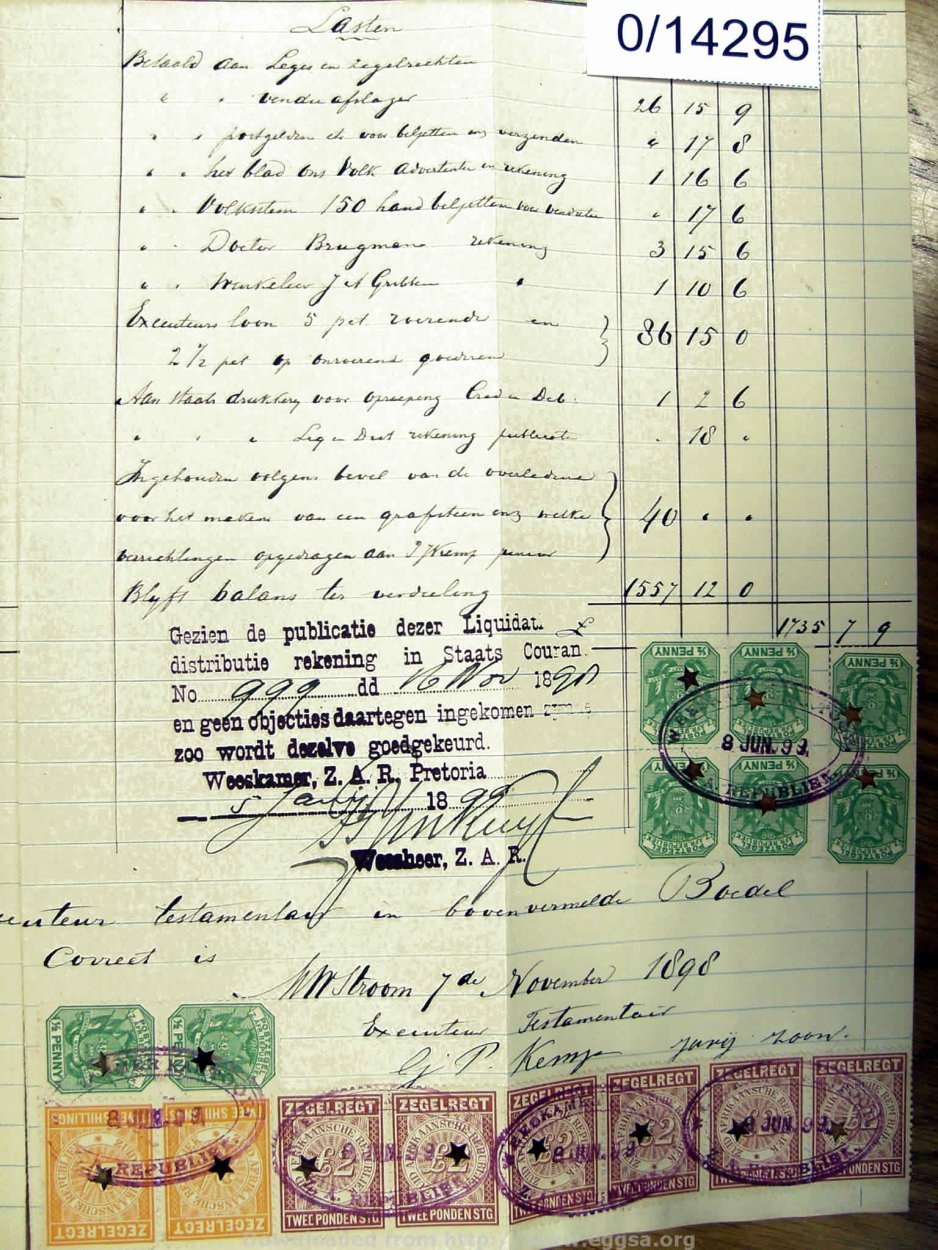 0/14295
Lasten
Betaald aan Leges en zegelrechten
" " vendu afslager 26 15 9
" " postgelden voor biljetten en verzenden " 17 8
" " het blad Ons Volk advertentie en rekening 1 16 6
" " Volksstem 150 hand biljetten voor vendutie " 17 6
" " Doctor Brugmans rekening 3 15 6
" " Winkelier J A " 1 10 6
Executeurs loon 5 pct roerende en
2 1/2 pct op onroerend goederen } 86 15 0
Aan Staats drukkery voor oproeping Cred en Deb: 1 2 6
" " " Liq en Dist rekening publicatie " 18 "
Ingehouden volgens bevel van de overledene
voor het maken van een grafsteen enz welke } 40 " "
verrichtingen opgedragen aan Kemp
Blyft balans ter verdeeling 1557 12 0
£ 1735 7 9
Gezien de publicatie dezer Liquidati
distributie rekening in Staats Couran
No 999 dd 16 Nov 1898
en geen objecties daartegen ingekomen zynde
zoo wordt dezelve goedgekeurd.
Weeskamer, Z. A. R., Pretoria
5 1899
Weesheer, Z. A. R.
ecuteur testamentair in bovenvermelde Boedel
Correct is
WStroom 7de November 1898
Executeur Testamentair
P. Kemp Jurij zoon.
½ PENNY ½ PENNY ½ PENNY
8 JUN. 99.
REPUBLIEK.
½ PENNY ½ PENNY
8 JUN. 99
REPUBLIEK
ZEGELREGT ZEGELREGT ZEGELREGT ZEGELREGT ZEGELREGT ZEGELREGT
£2 £2 £2 £2
8 JUN. 99 8 JUN. 99 8 JUN. 99
TWEE PONDEN STG TWEE PONDEN STG TWEE PONDEN STG TWEE PONDEN STG TWEE PONDEN STG TWEE PONDEN STG
ZEGELREGT ZEGELREGT
Downloaded from http://www.eggsa.org